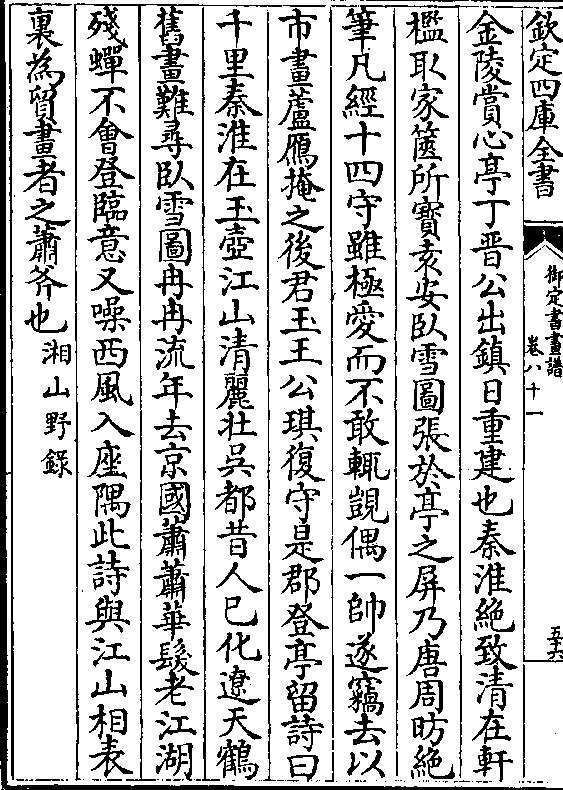 欽定四庫全書
御定書畫譜
卷八十一
五六
金陵賞心亭丁晋公出鎮日重建也秦淮絶致清在軒
檻取家篋所寳袁安臥雪圖張於亭之屏乃唐周昉絶
筆凡經十四守雖極愛而不敢輒覬偶一帥遂竊去以
市畫蘆鴈掩之後君玉王公琪復守是郡登亭留詩曰
千里秦淮在玉壺江山清麗壮吳都昔人已化遼天鶴
舊畫難尋臥雪圖冉冉流年去京國蕭蕭華髮老江湖
殘蟬不會登臨意又噪西風入座隅此詩與江山相表
裏為貿畫者之蕭斧也湘山野錄